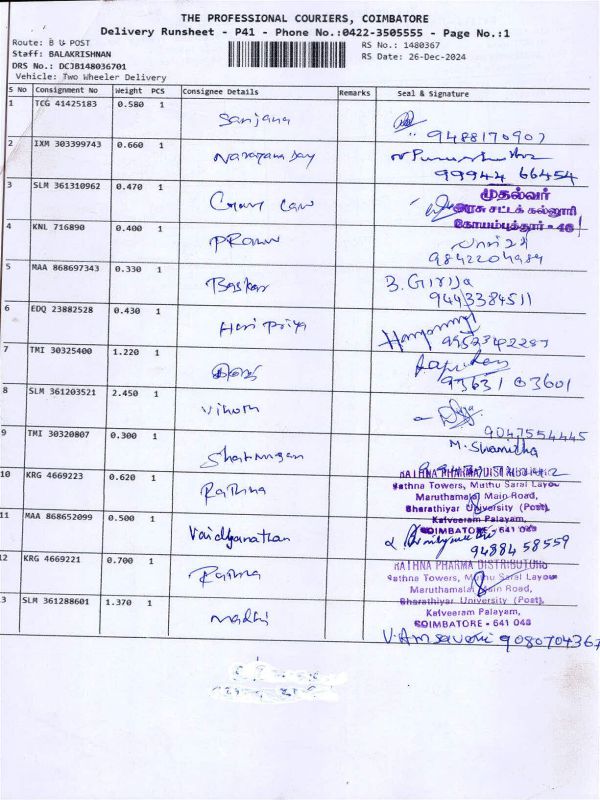 THE PROFESSIONAL COURIERS, COIMBATORE
Delivery Runsheet - P41 - Phone No.:0422-3505555 - Page No.:1
Route: B U POST
RS No.: 1480367
Staff: BALAKRISHNAN
RS Date: 26-Dec-2024
DRS No.: DCJB148036701
Vehicle: Two Wheeler Delivery
S No Consignment No Weight PCS Consignee Details Remarks Seal & Signature
1 TCG 41425183 0.580 1 Sanjana
9488170907
2 IXM 303399743 0.660 1
99944 66454
3 SLM 361310962 0.470 1
முதல்வர்
அரசு சட்டக் கல்லூரி
கோயம்புத்தூர் - 46
4 KNL 716890 0.400 1
9842204984
5 MAA 868697343 0.330 1 Baskar B. Girija
9443384511
6 EDQ 23882528 0.430 1 Hari priya
7 TMI 30325400 1.220 1
93631 03601
8 SLM 361203521 2.450 1
9047554445
9 TMI 30320807 0.300 1 M. Shanmitha
10 KRG 4669223 0.620 1 Rathna
RATHNA PHARMA DISTRIBUTORS
Rathna Towers, Mathu Saral Layout
Maruthamalai Main Road,
Bharathiyar University (Post),
Kalveeram Palayam,
COIMBATORE - 641 046
11 MAA 868652099 0.500 1 Vaidhyanathan
94884 58559
12 KRG 4669221 0.700 1 Rathna
RATHNA PHARMA DISTRIBUTORS
Rathna Towers, Mathu Saral Layout
Maruthamalai Main Road,
Bharathiyar University (Post),
Kalveeram Palayam,
COIMBATORE - 641 046
3 SLM 361288601 1.370 1 Madhi
9080704367